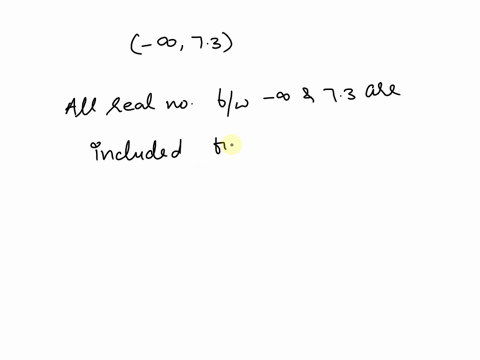 (-∞, 7.3)
All real no. b/w -∞ & 7.3 are
included